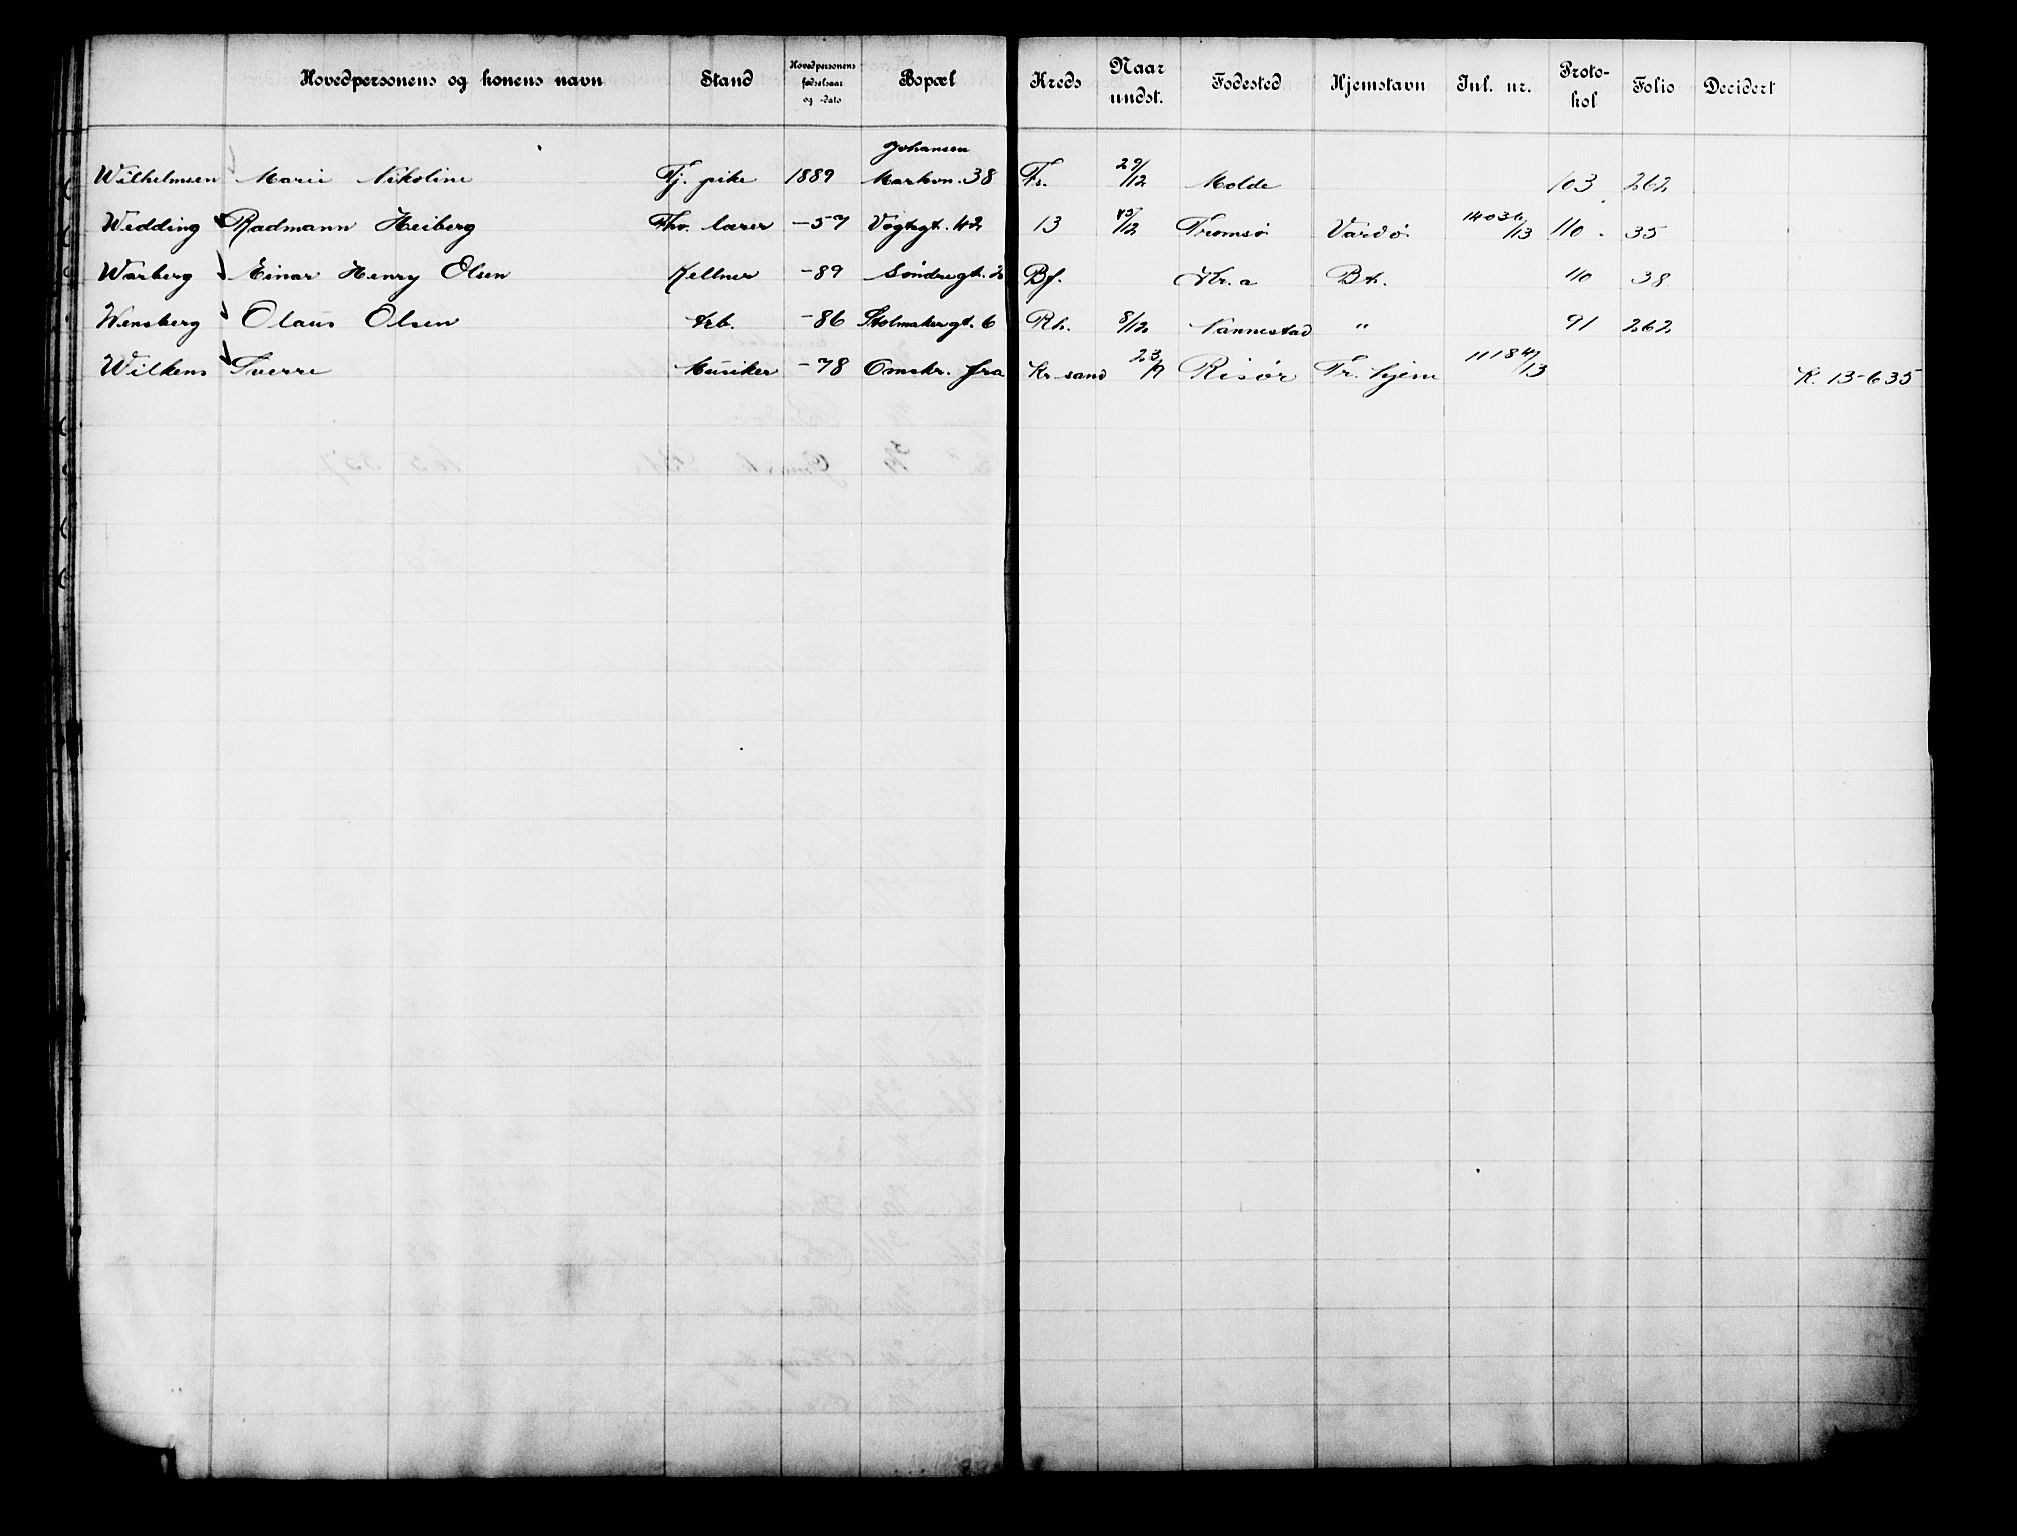 Hovedpersonens og konens navn Stand Hovedpersonens fødselsaar og -dato Bopæl Kreds Naar undst. Fødested Hjemstavn Jnl. nr. Protokol Folio Decidert
Johansen
Wilhelmsen Marie Nikoline Tj. pike 1889 Markvn. 38 Fr. 29/12 Molde 103 262
Wedding Radmann Heiberg Fhv. lærer -57 Vogtsgt. 42 13 /12 Tromsø Vardø /13 110 35
Warberg Einar Henry Olsen Kellner -89 Søndregt. Bf. Kr.a Bh. 110 38
Wensberg Olaus Olsen Arb. -86 Stolmakergt. 6 Rh. 8/12 Nannestad " 91 262
Wilkens Sverre Musiker -78 Omskr. fra Kr sand 23/ Risør Tr. hjem /13 K. 13-635